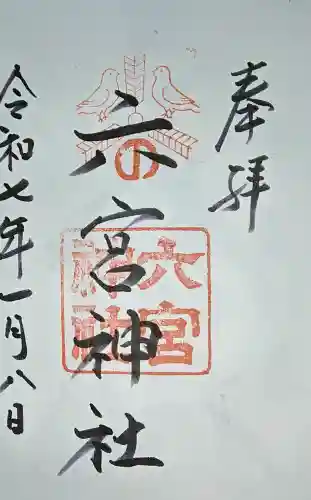 奉拝
六宮神社
六宮
神社
令和七年一月八日